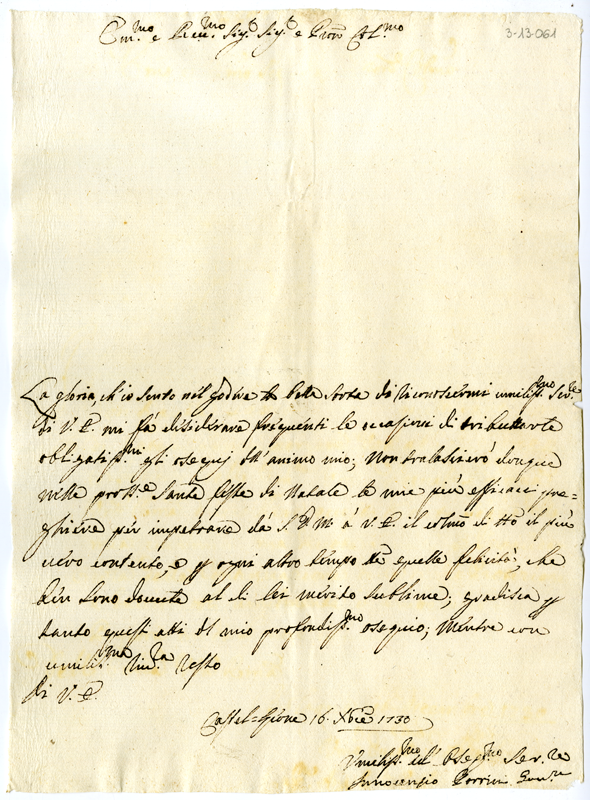 Em.mo e Rev.mo Sig.r Sig.r e Pron Col.mo
3-13-061
La gloria, ch'io sento nel godere la bella sorte di riconoscermi umiliss.mo Ser.re
di V. E. mi fà desiderare frequenti le occasioni di tributarle
obligatiss.mi gli ossequj dell'animo mio; Non tralascierò dunque
nelle pross.e sante feste di Natale le mie più efficaci pre=
ghiere per impetrare da S. D. M. à V. E. il colmo di tt.o il più
vero contento, e p ogni altro tempo tt.e quelle felicità, che
ben sono dovute al di lei merito sublime; gradisca p
tanto questi atti del mio profondiss.mo ossequio; Mentre con
umilis.ma riv.za resto
Di V. E.
Castel=Gione 16. Xbre 1730
Umiliss.mo ed Osseq.mo Ser.re
Innocenzio Porrini Gov.re